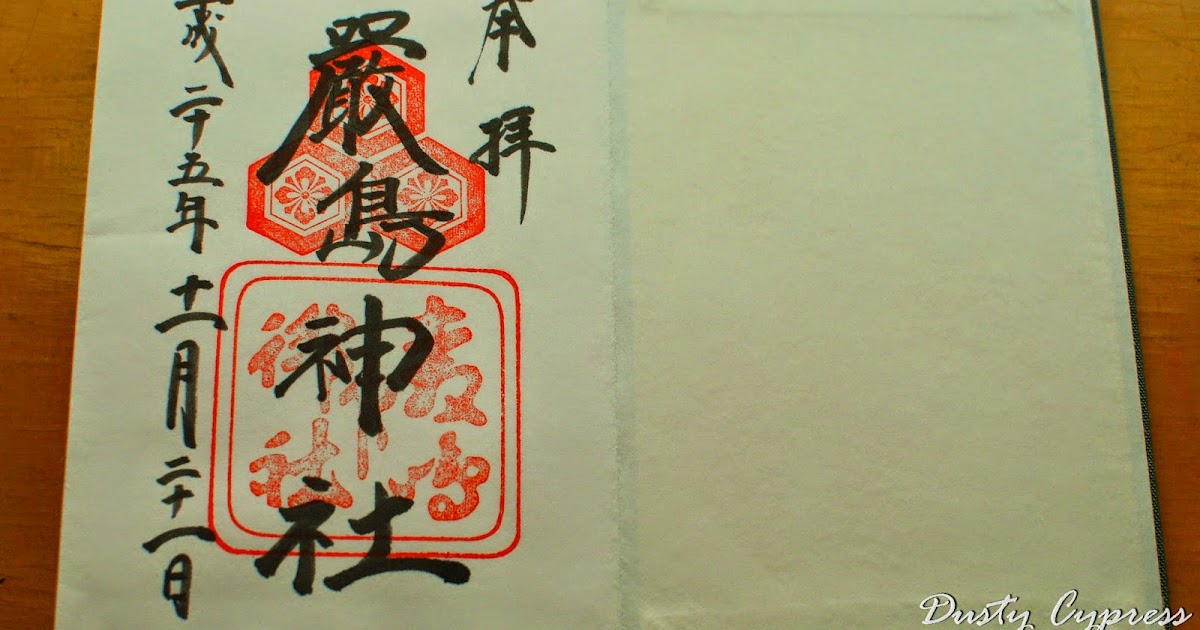 奉拝
嚴島神社
平成二十五年十一月二十一日
Dusty Cypress